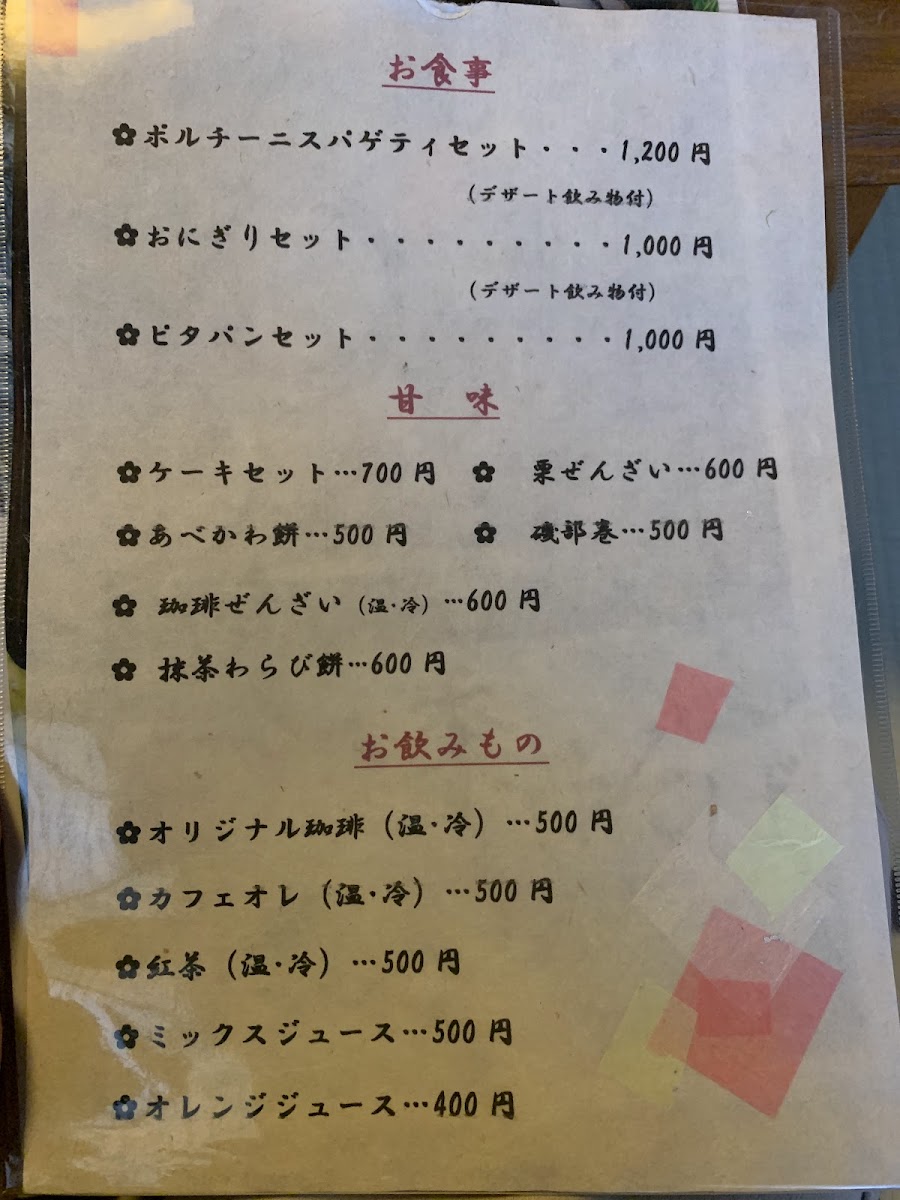 お食事
✿ポルチーニスパゲティセット・・・1,200 円
(デザート飲み物付)
✿おにぎりセット・・・・・・・・・1,000 円
(デザート飲み物付)
✿ピタパンセット・・・・・・・・・1,000 円
甘　味
✿ケーキセット…700 円　✿　栗ぜんざい…600 円
✿あべかわ餅…500 円　✿　磯部巻…500 円
✿ 珈琲ぜんざい (温・冷) …600 円
✿ 抹茶わらび餅…600 円
お飲みもの
✿オリジナル珈琲 (温・冷) …500 円
✿カフェオレ (温・冷) …500 円
✿紅茶 (温・冷) …500 円
✿ミックスジュース…500 円
✿オレンジジュース…400 円